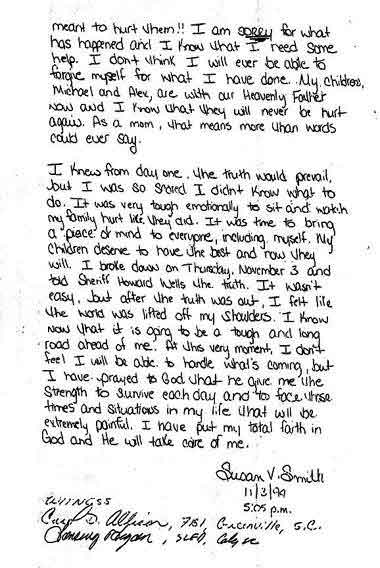 meant to hurt them!! I am sorry for what
has happened and I know that I need some
help. I don't think I will ever be able to
forgive myself for what I have done. My children,
Michael and Alex, are with our Heavenly Father
now and I know that they will never be hurt
again. As a mom, that means more than words
could ever say.
I knew from day one, the truth would prevail,
but I was so scared I didn't know what to
do. It was very tough emotionally to sit and watch
my family hurt like they did. It was time to bring
a piece of mind to everyone, including myself. My
children deserve to have the best and now they
will. I broke down on Thursday, November 3 and
told Sheriff Howard Wells the truth. It wasn't
easy, but after the truth was out, I felt like
the world was lifted off my shoulders. I know
now that it is going to be a tough and long
road ahead of me. At this very moment, I don't
feel I will be able to handle what's coming, but
I have prayed to God that he give me the
strength to survive each day and to face those
times and situations in my life that will be
extremely painful. I have put my total faith in
God and He will take care of me.
Susan V. Smith
11/3/94
5:05 p.m.
FBI, S.C.
SLED,